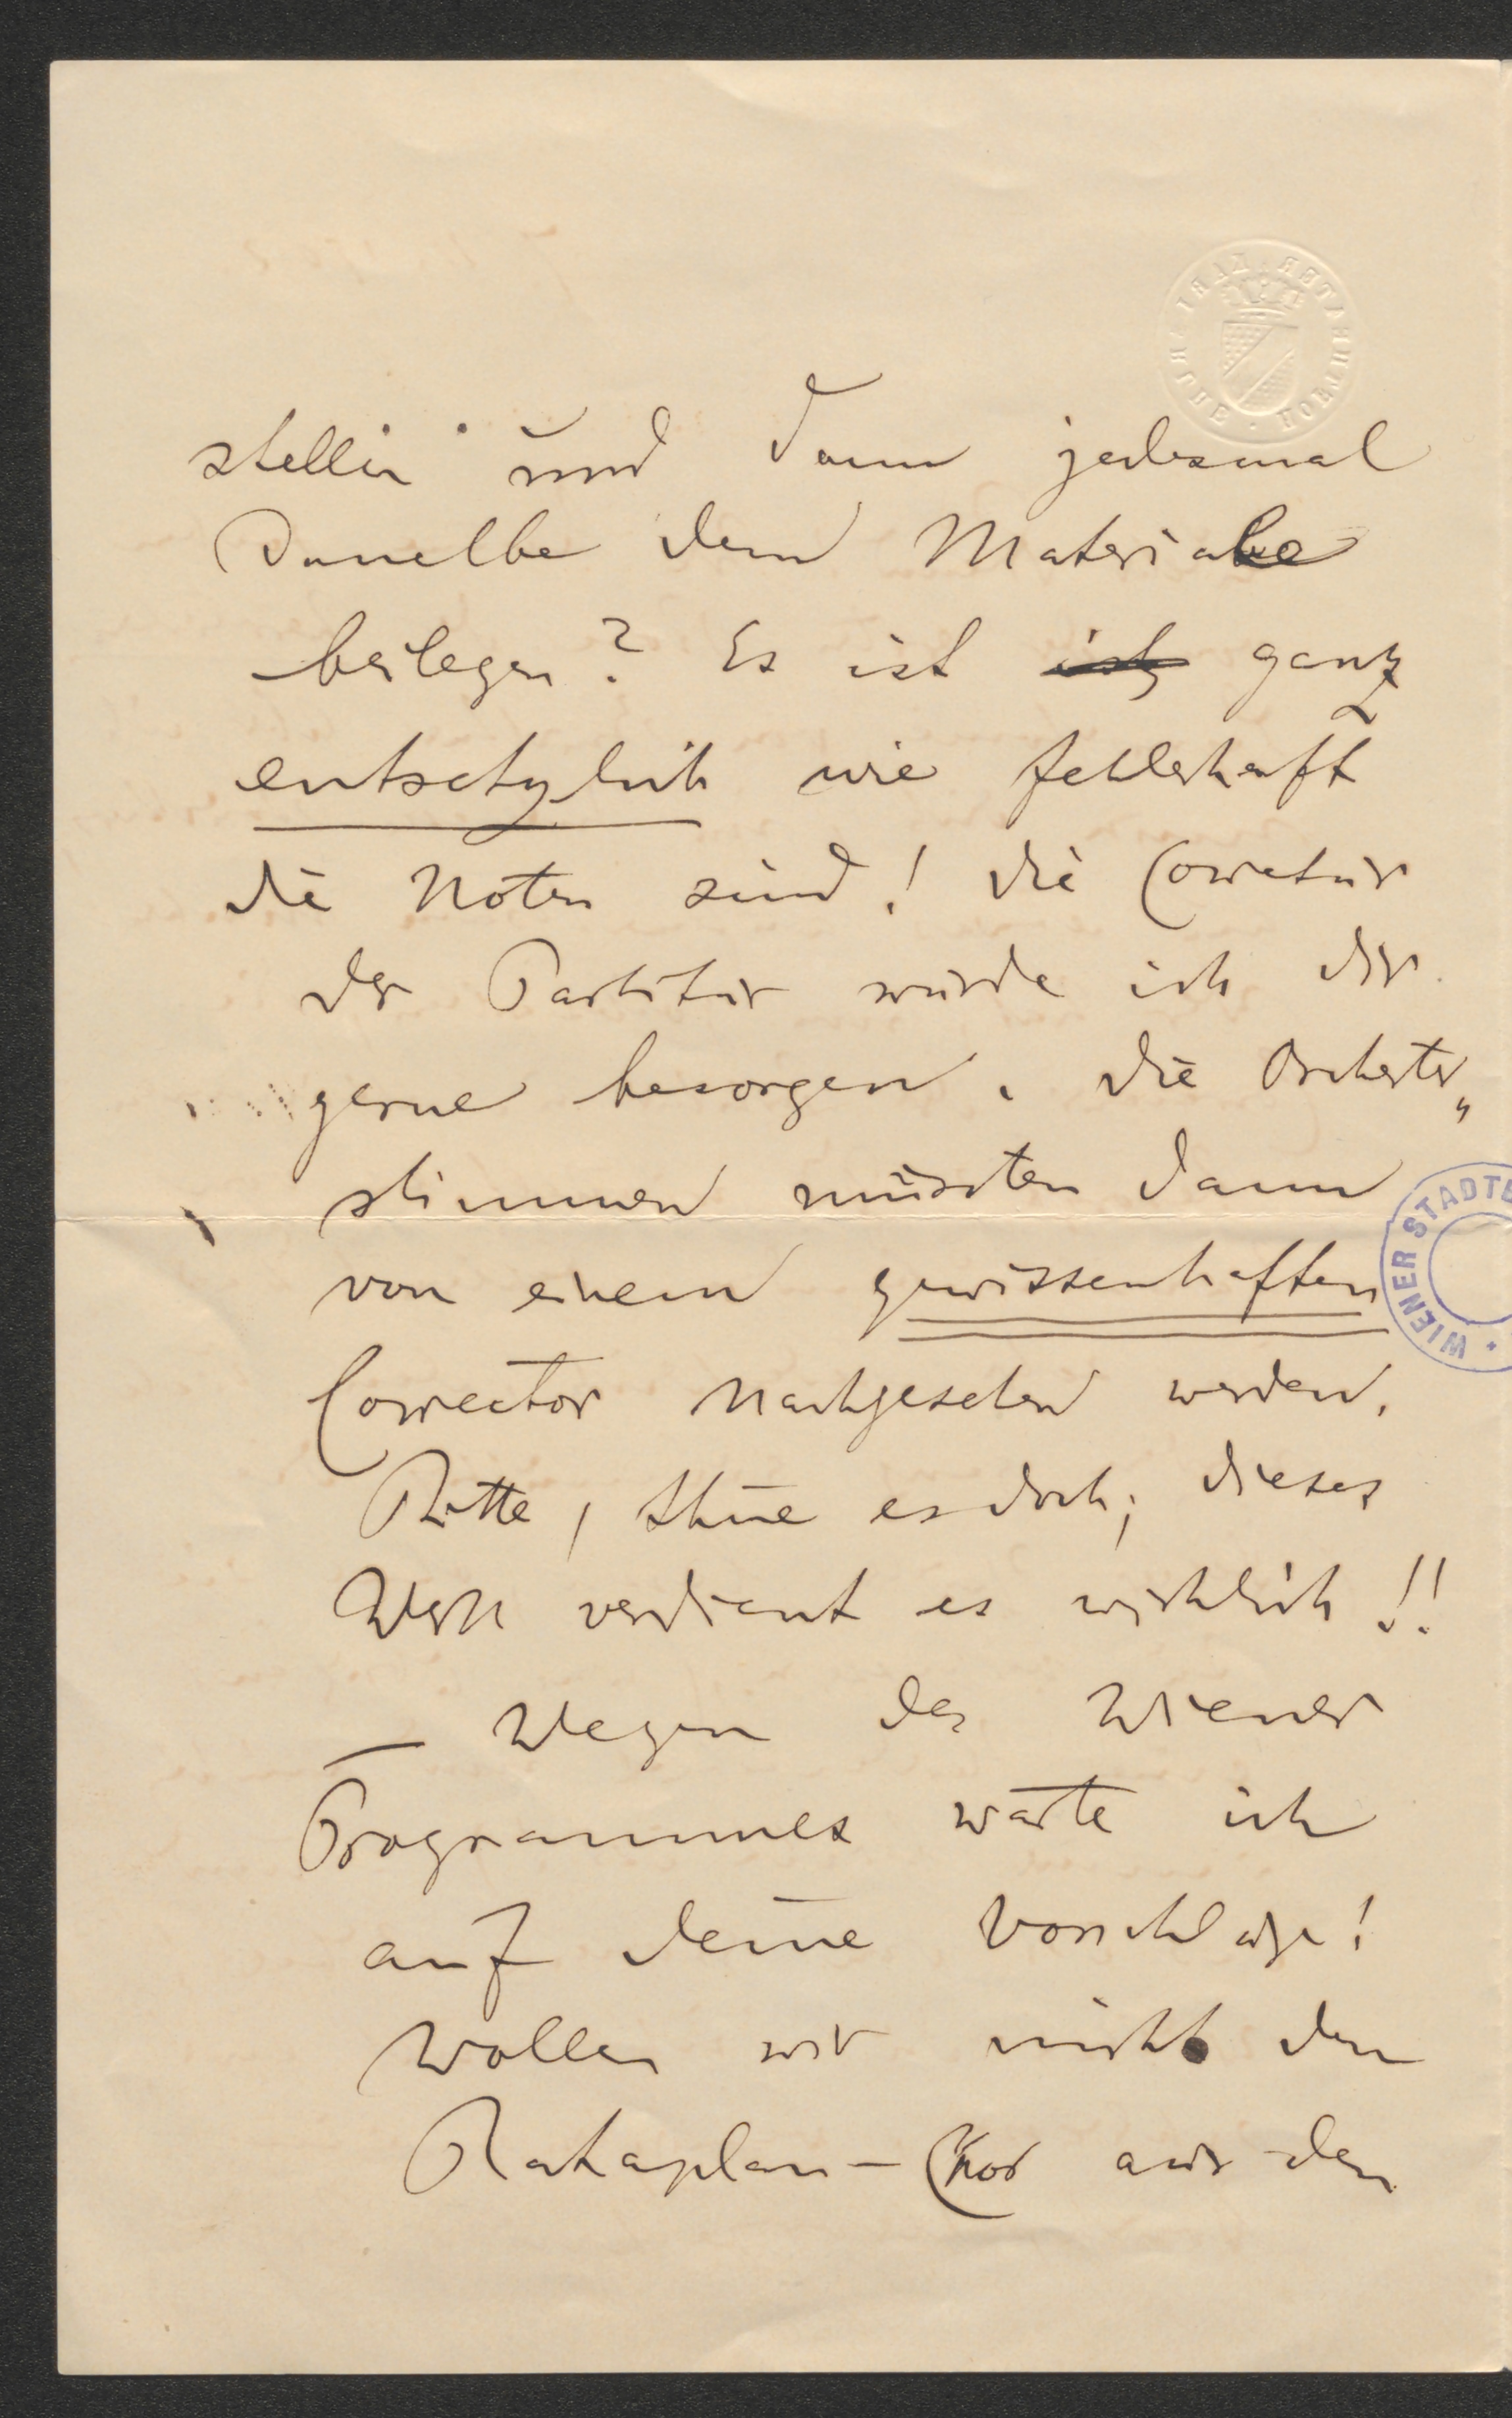 HOFTHEATER KARLSRUHE
stellen und dann jedesmal
Dasselbe dem Materiale
beilegen? Es ist ist ganz
entsetzlich wie fehlerhaft
die Noten sind! Die Correctur
der Partitur würde ich dir
gerne besorgen. Die Orchester„
stimmen müssten dann
von einem gewissenhaften
Corrector nachgesehen werden.
Bitte, thue es doch; dieses
Werk verdient es wirklich!!
— Wegen des Wiener
Programmes warte ich
auf deine Vorschläge!
Wollen wir nicht den
Rataplan-Chor aus den
WIENER STADTB